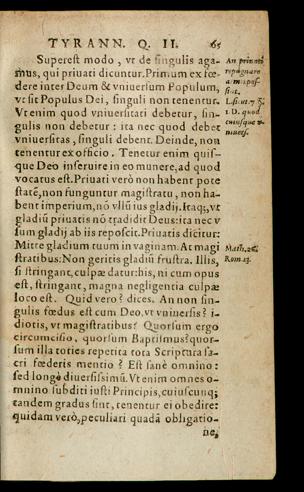 TYRANN. Q. II. 65
Superest modo, vt de singulis aga-
mus, qui priuati dicuntur. Primum ex fœ-
dere inter Deum & vniuersum Populum,
vt sit Populus Dei, singuli non tenentur.
Vt enim quod vniuersitati debetur, sin-
gulis non debetur: ita nec quod debet
vniuersitas, singuli debent. Deinde, non
tenentur ex officio. Tenetur enim quis-
que Deo inseruire in eo munere, ad quod
vocatus est. Priuati verò non habent pote
statẽ, non funguntur magistratu, non ha-
bent imperium, nõ vllũ ius gladij. Itaq;, vt
gladiũ priuatis nõ tradidit Deus: ita nec v
sum gladij ab iis reposcit. Priuatis dicitur:
Mitte gladium tuum in vaginam. At magi
stratibus: Non geritis gladiũ frustra. Illis,
si stringant, culpæ datur: his, ni cum opus
est, stringant, magna negligentia culpæ
loco est. Quid vero? dices. An non sin-
gulis fœdus est cum Deo, vt vniuersis? i-
diotis, vt magistratibus? Quorsum ergo
circumcisio, quorsum Baptismus? quor-
sum illa toties repetita tota Scriptura sa-
cri fœderis mentio? Est sanè omnino:
sed longè diuersissimũ. Vt enim omnes o-
mnino subditi iusti Principis, cuiuscunq;
tandem gradus sint, tenentur ei obedire:
quidam verò, peculiari quadã obligatio-
ne,
An priuatis
repugnare
armis pos-
sit.
L. sicut. 7. §.
1. D. quod
cuiusque v-
niuers.
Math. 26.
Rom. 13.